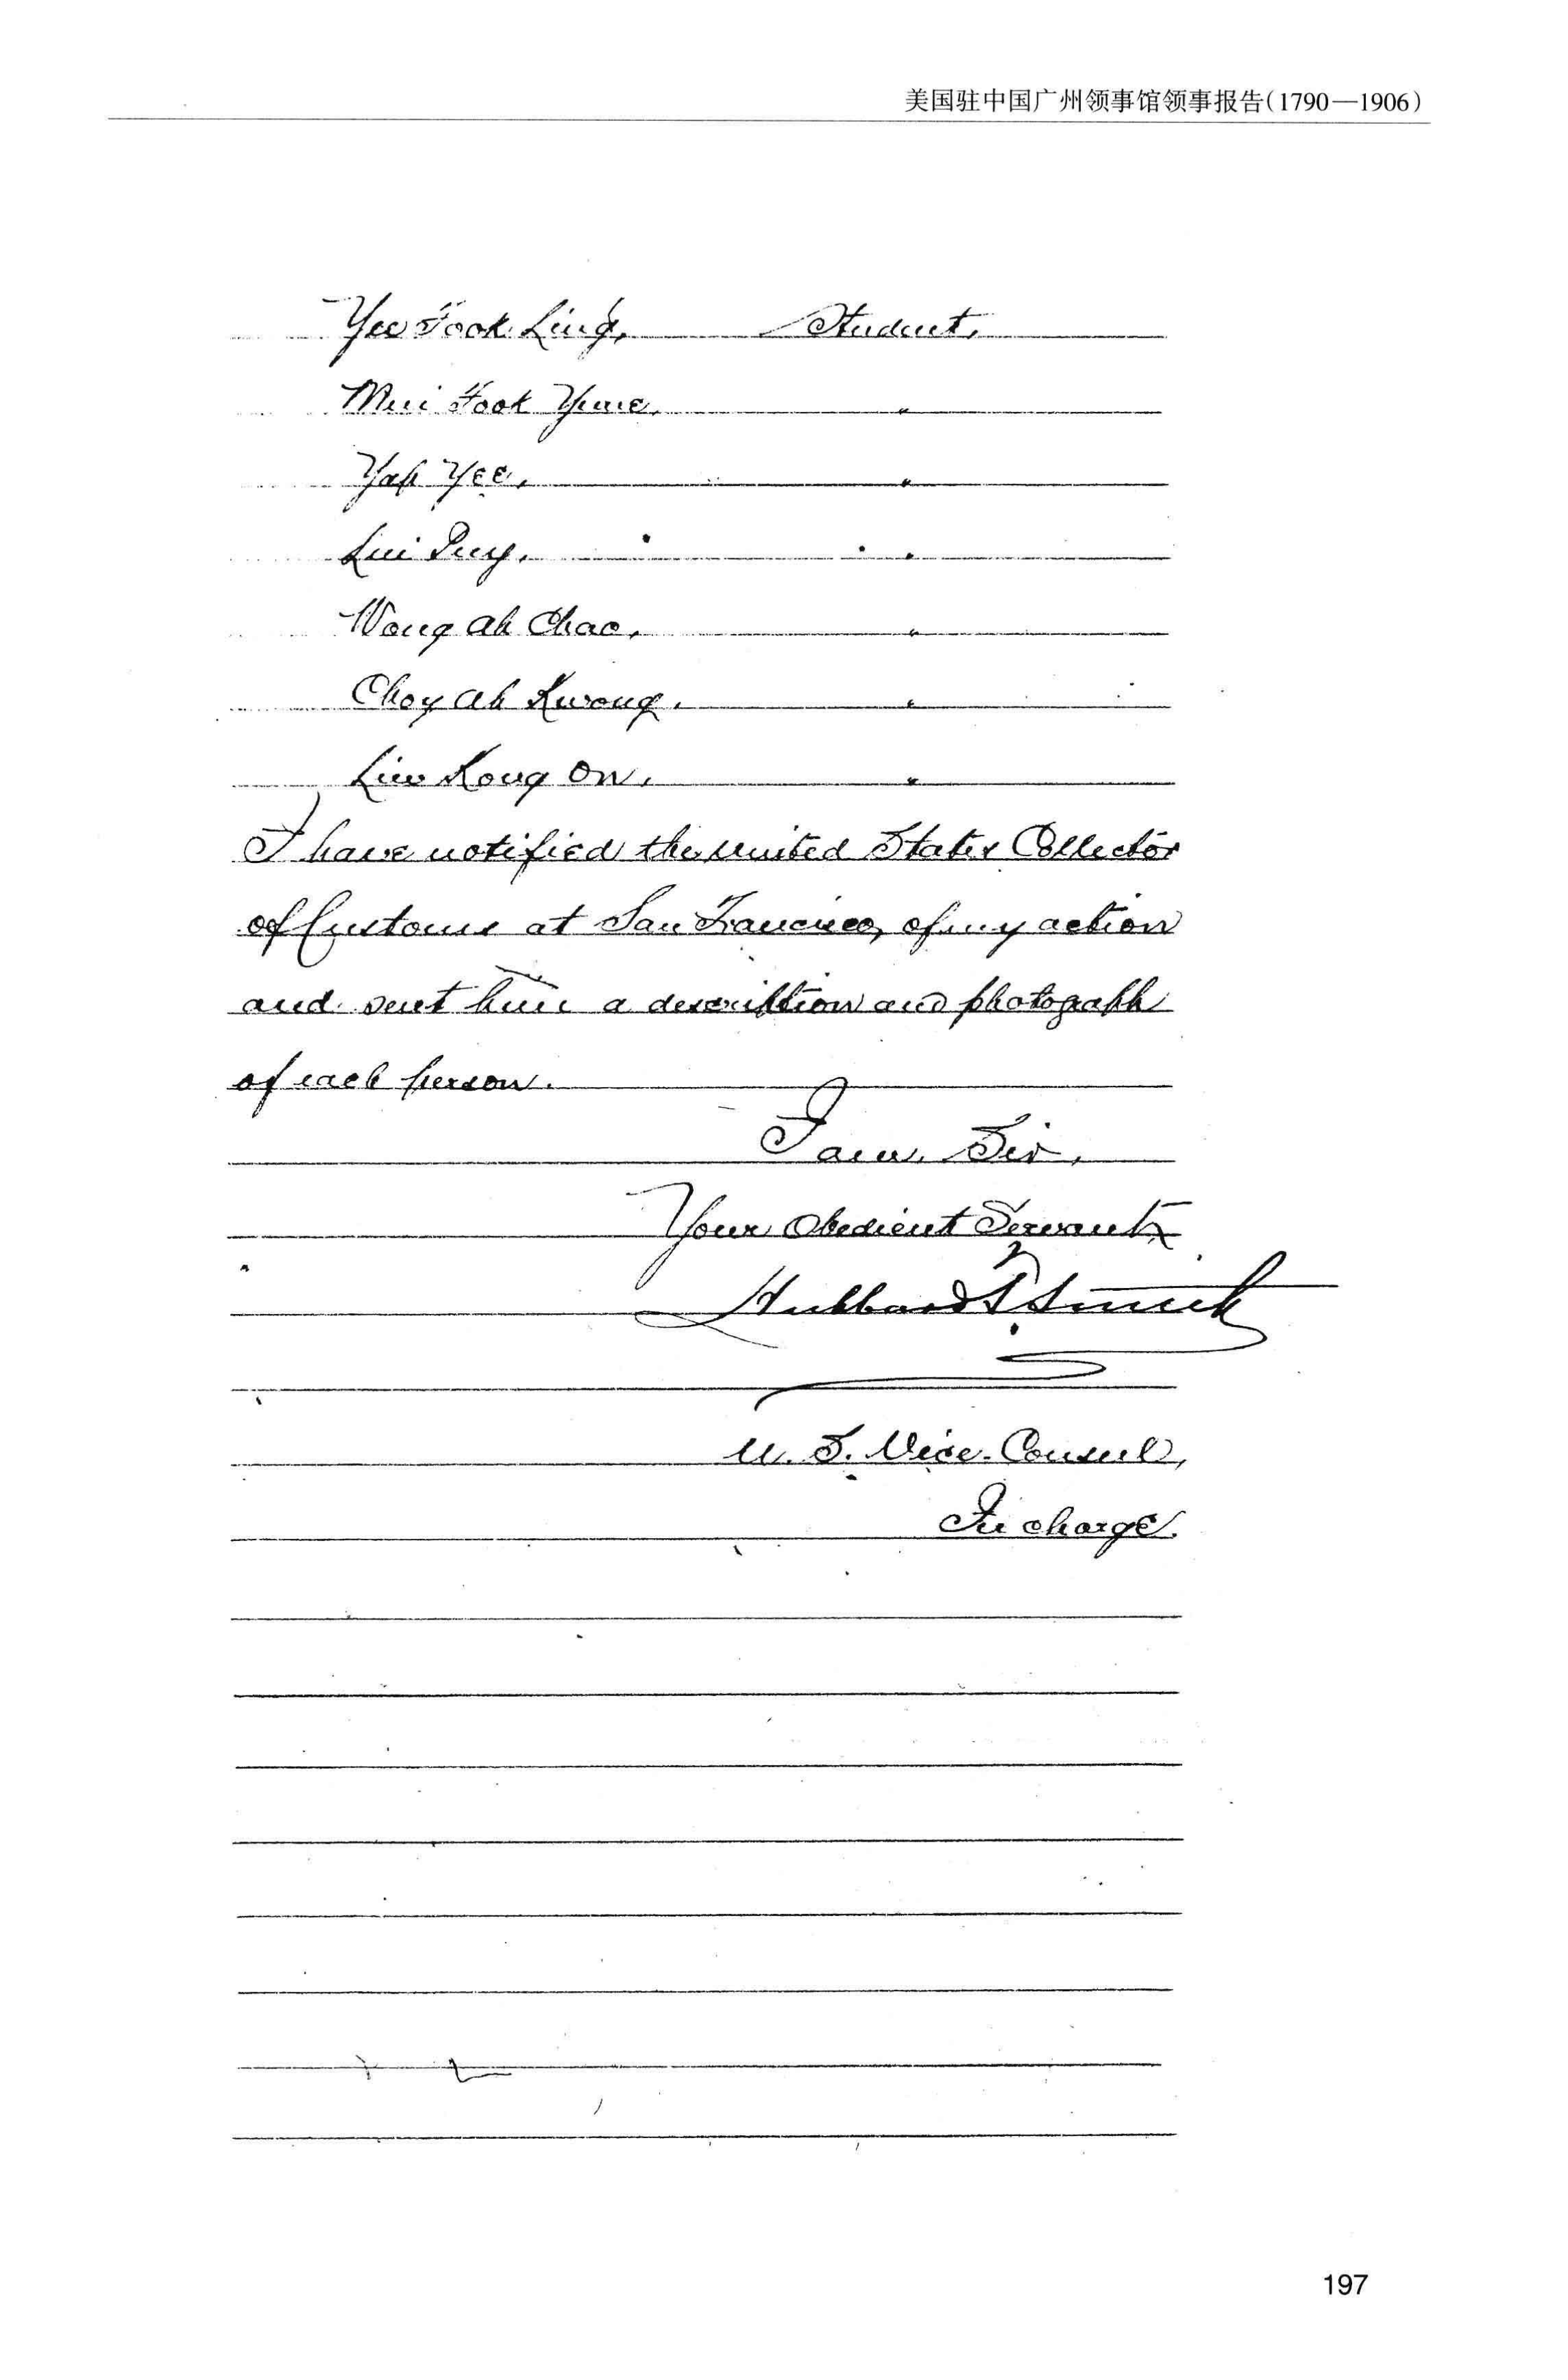 美国驻中国广州领事馆领事报告(1790—1906)
Yee Fook Ling, Student,
Mui Fook Yune, "
Yap Yee, "
Lui Puy, "
Wong Ah Chao, "
Choy Ah Kwong, "
Liu Kong On, "
I have notified the United States Collector
of Customs at San Francisco, of my action
and sent him a description and photograph
of each person.
I am, Sir,
Your Obedient Servant,
Hubbard T. Smith
U. S. Vice-Consul,
In charge.
197